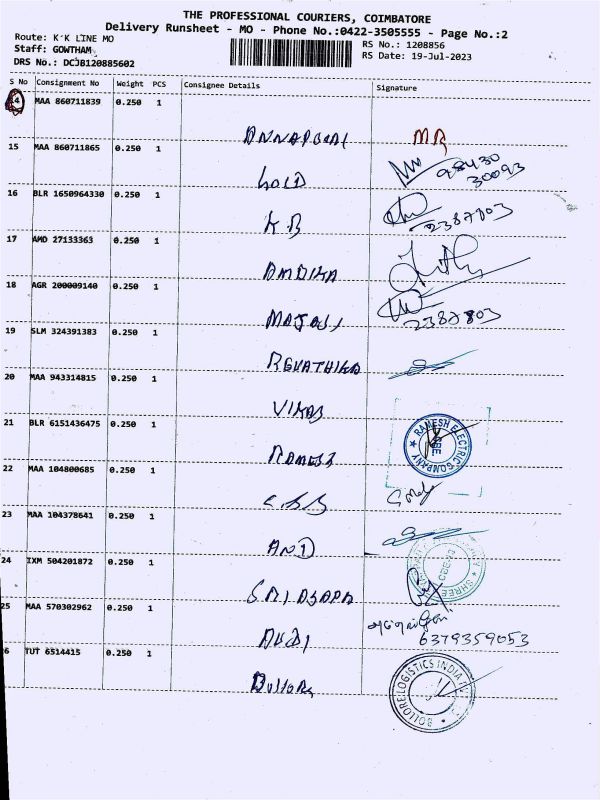 THE PROFESSIONAL COURIERS, COIMBATORE
Delivery Runsheet - MO - Phone No.:0422-3505555 - Page No.:2
Route: K'K LINE MO
RS No.: 1208856
Staff: GOWTHAM
RS Date: 19-Jul-2023
DRS No.: DCJB120885602
S No Consignment No Weight PCS Consignee Details Signature
14 MAA 860711839 0.250 1
15 MAA 860711865 0.250 1 GOLD 98430
30093
16 BLR 1650964330 0.250 1 K.B 2387803
17 AMD 27133363 0.250 1 AMBIKA
18 AGR 200009140 0.250 1 2387803
19 SLM 324391383 0.250 1 REVATHIKA
20 MAA 943314815 0.250 1 VIKAS
21 BLR 6151436475 0.250 1 RAMESH RAMESH ELECTRIC COMPANY CBE
22 MAA 104800685 0.250 1
23 MAA 104378641 0.250 1 AND
24 IXM 504201872 0.250 1 SHREE
25 MAA 570302962 0.250 1 AUDI 6379359053
26 TUT 6514415 0.250 1 Bollore BOLLORE LOGISTICS INDIA